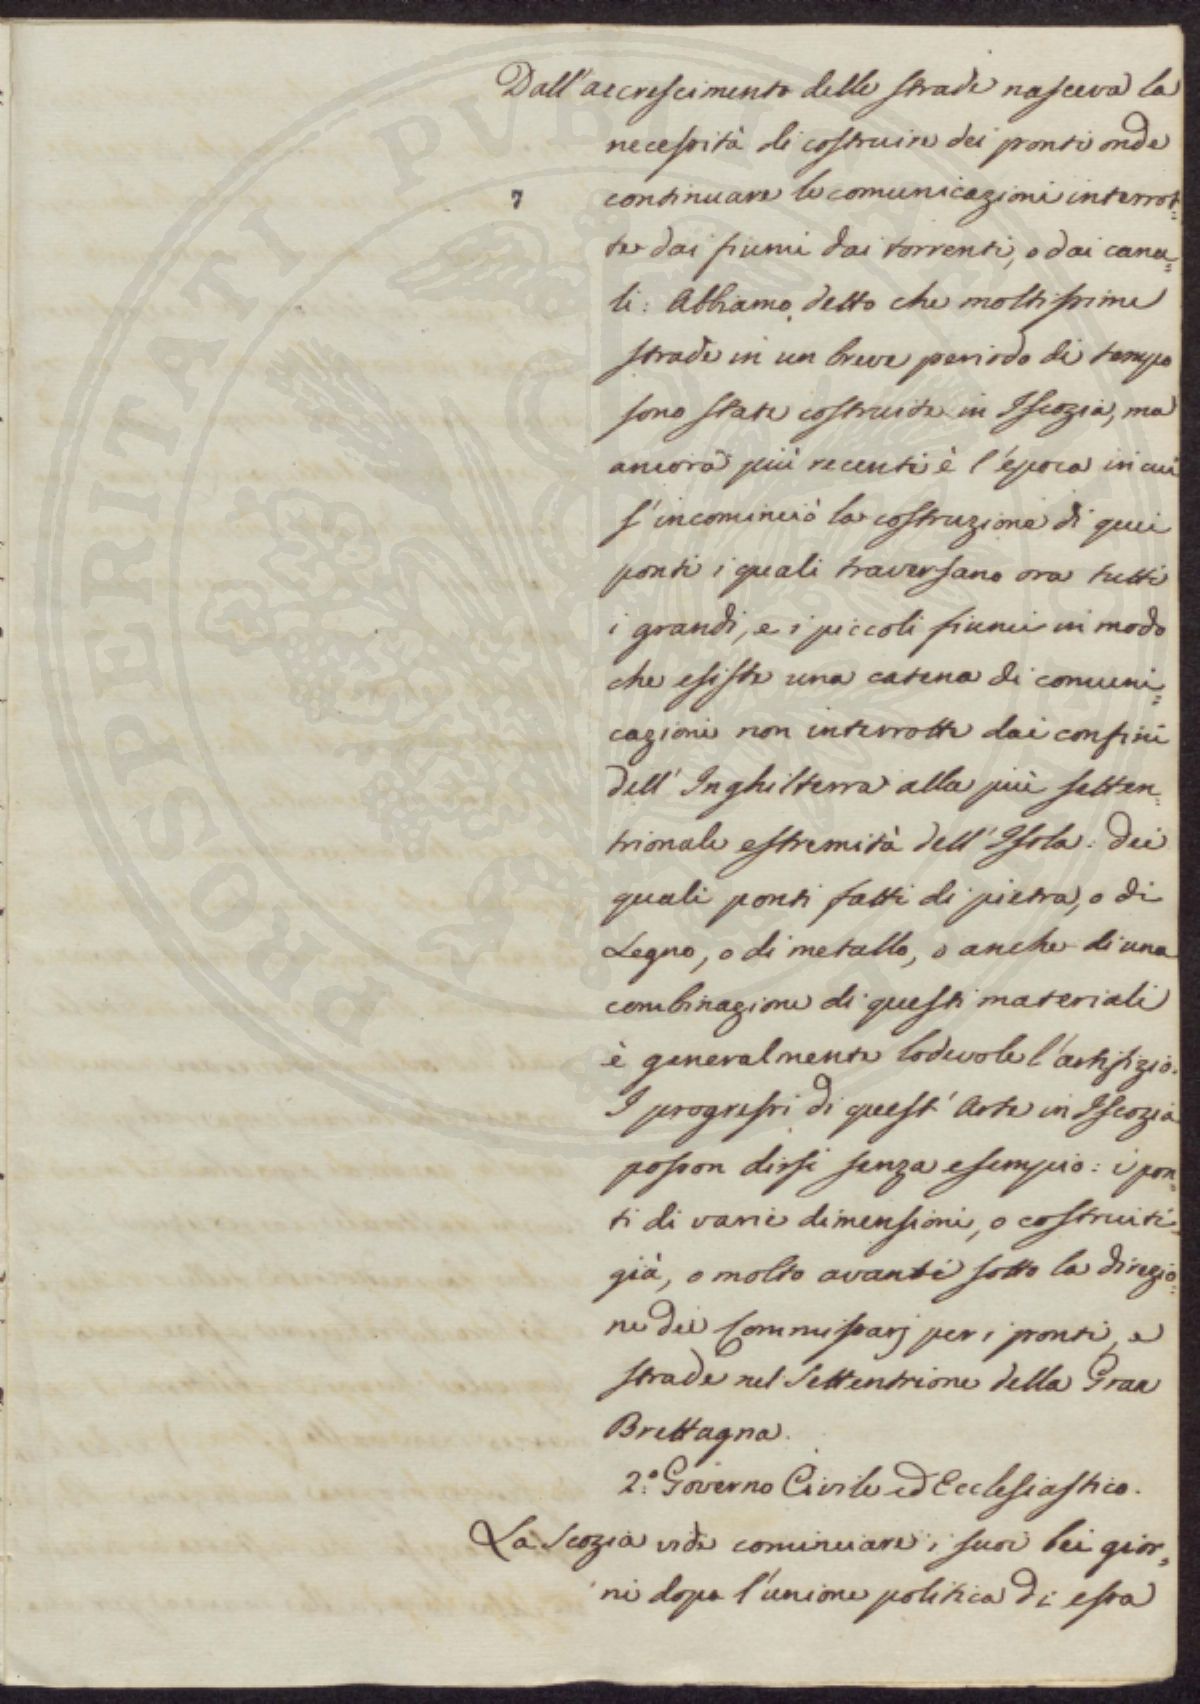 Dall'accrescimento delle strade nasceva la
necessità di costruire dei ponti onde
7
continuare le comunicazioni interrot=
te dai fiumi dai torrenti, o dai cana=
li: Abbiamo detto che moltissime
strade in un breve periodo di tempo
sono state costruite in Iscozia, ma
ancora più recente è l'epoca in cui
s'incominciò la costruzione di quei
ponti i quali traversano ora tutti
i grandi, e i piccoli fiumi in modo
che esiste una catena di comuni=
cazione non interrotta dai confini
dell'Inghilterra alla più setten=
trionale estremità dell'Isola: dei
quali ponti fatti di pietra, o di
Legno, o di metallo, o anche di una
combinazione di questi materiali
è generalmente lodevole l'artifizio.
I progressi di quest'Arte in Iscozia
posson dirsi senza esempio: i pon=
ti di varie dimensioni, o costruiti
già, o molto avanti sotto la direzio=
ne dei Commissarj per i ponti, e
strade nel Settentrione della Gran
Brettagna.
2.° Governo Civile ed Ecclesiastico.
La Scozia vide cominciare i suoi bei gior=
ni dopo l'unione politica di essa
PROSPERITATI PVBLICAE